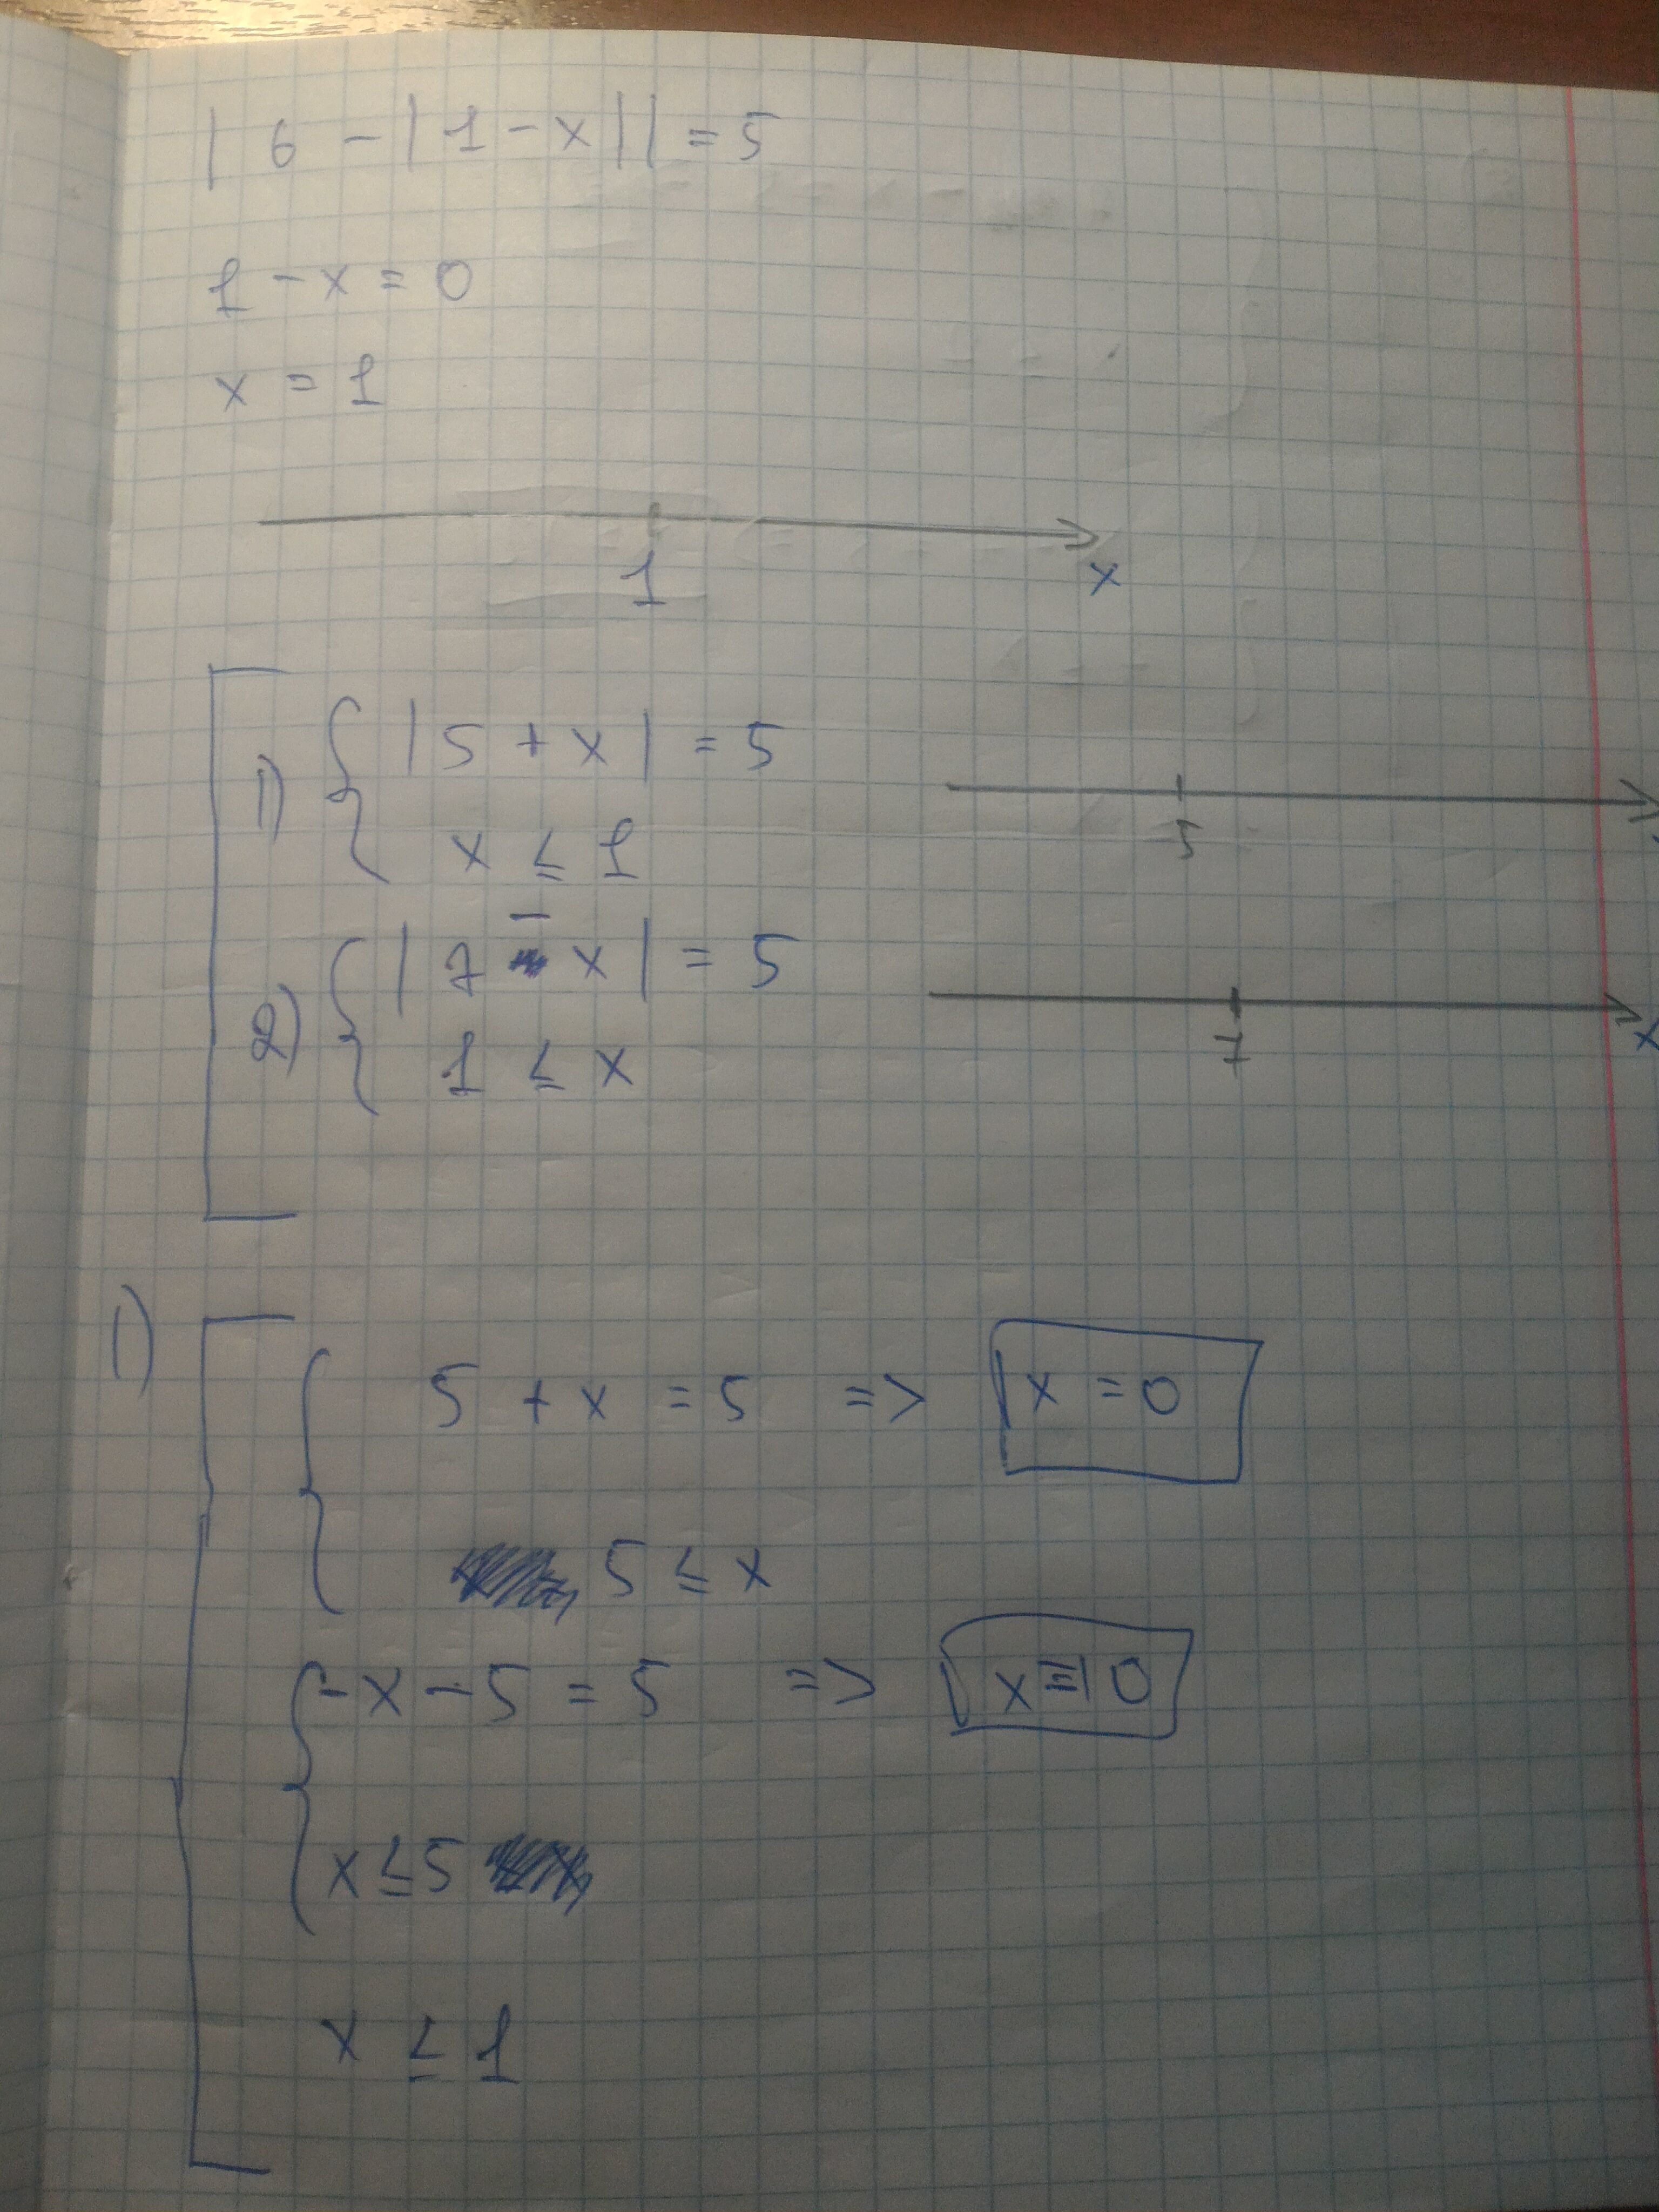 | 6 - | 1 - x | | = 5
1 - x = 0
x = 1
1 x
1) | 5 + x | = 5
5
x ≤ 1
2) | 7 - x | = 5
7 x
1 ≤ x
1)
5 + x = 5 => x = 0
5 ≤ x
-x - 5 = 5 => x = -10
x ≤ 5
x ≤ 1